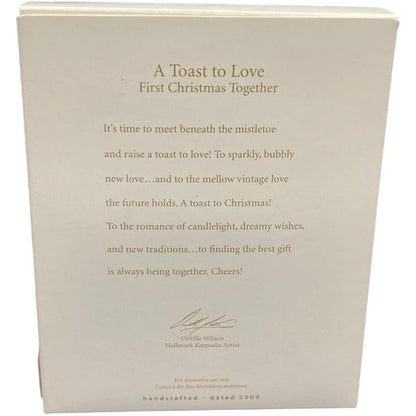 A Toast to Love
First Christmas Together
It's time to meet beneath the mistletoe
and raise a toast to love! To sparkly, bubbly
new love...and to the mellow vintage love
the future holds. A toast to Christmas!
To the romance of candlelight, dreamy wishes,
and new traditions...to finding the best gift
is always being together. Cheers!
Orville Wilson
Hallmark Keepsake Artist
For decorative use only.
Conçu à des fins décoratives seulement.
handcrafted – dated 2009